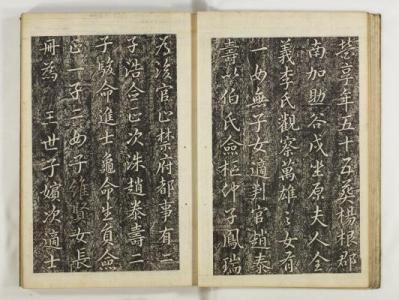 營享年五十五葬楊根郡
南加助谷戌坐原夫人全
義李氏觀察萬雄之女有
一女無子女適判官趙泰
壽以伯氏僉樞仲子鳳瑞
爲後官止禁府都事有二
子浩僉正次洙趙泰壽二
子駿命進士龜命生員僉
正一子二女子維賢女長
冊爲 王世子嬪次適士